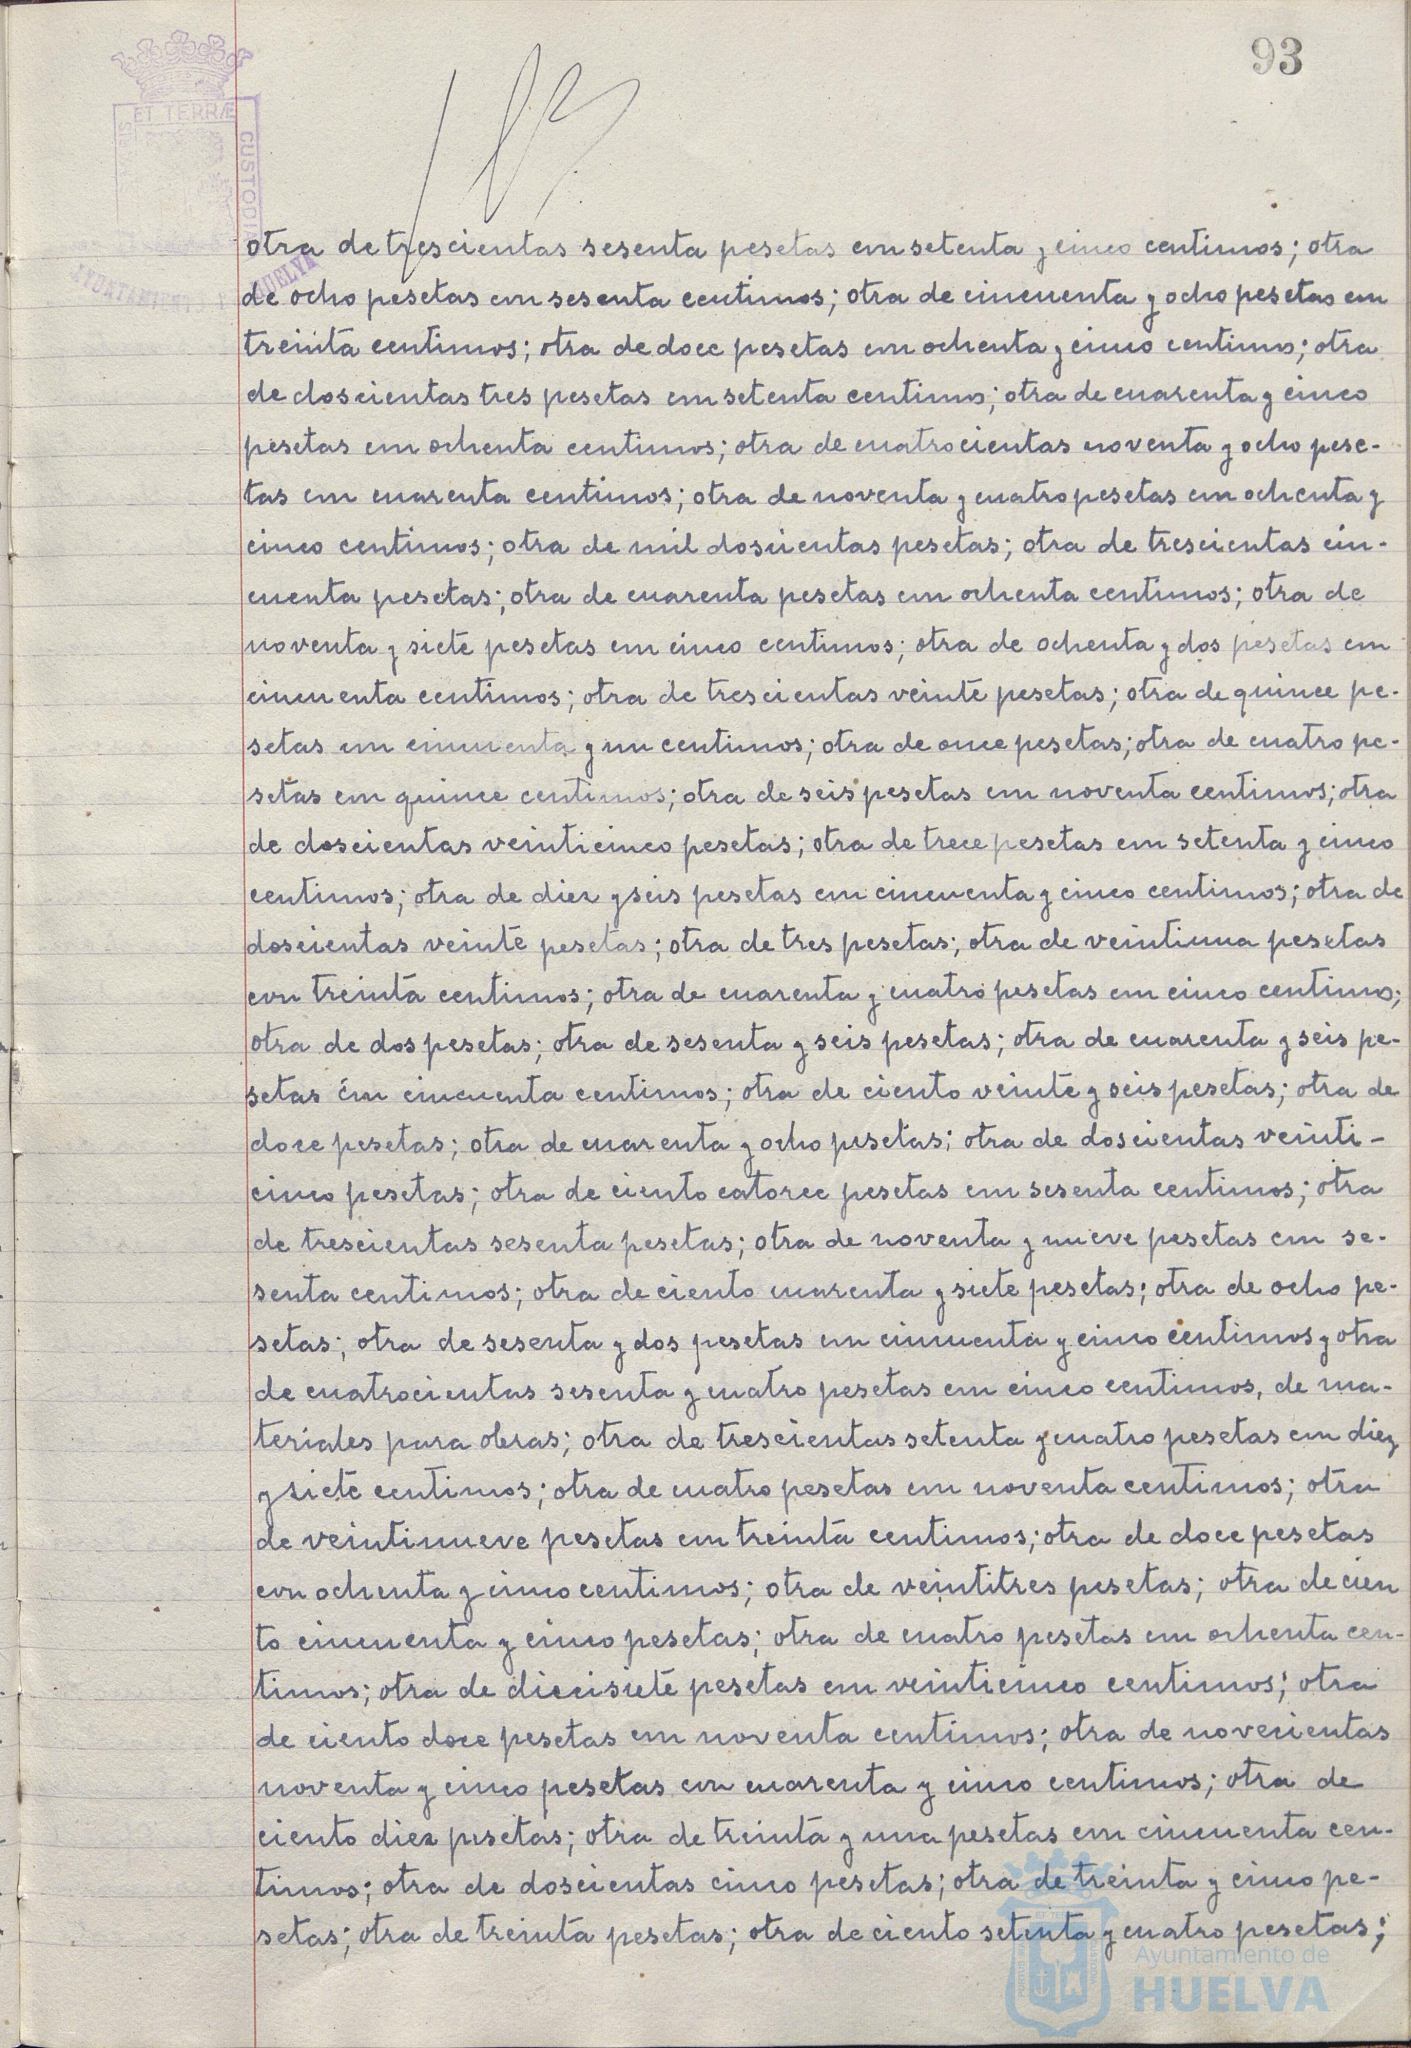 93
ET TERRÆ
CUSTODI
AYUNTAMIENTO HUELVA
otra de trescientas sesenta pesetas con setenta y cinco centimos; otra
de ocho pesetas con sesenta centimos; otra de cincuenta y ocho pesetas con
treinta centimos; otra de doce pesetas con ochenta y cinco centimos; otra
de doscientas tres pesetas con setenta centimos; otra de cuarenta y cinco
pesetas con ochenta centimos; otra de cuatrocientas noventa y ocho pese-
tas con cuarenta centimos; otra de noventa y cuatro pesetas con ochenta y
cinco centimos; otra de mil doscientas pesetas; otra de trescientas cin-
cuenta pesetas; otra de cuarenta pesetas con ochenta centimos; otra de
noventa y siete pesetas con cinco centimos; otra de ochenta y dos pesetas con
cincuenta centimos; otra de trescientas veinte pesetas; otra de quince pe-
setas con cincuenta y un centimos; otra de once pesetas; otra de cuatro pe-
setas con quince centimos; otra de seis pesetas con noventa centimos; otra
de doscientas veinticinco pesetas; otra de trece pesetas con setenta y cinco
centimos; otra de diez y seis pesetas con cincuenta y cinco centimos; otra de
doscientas veinte pesetas; otra de tres pesetas; otra de veintiuna pesetas
con treinta centimos; otra de cuarenta y cuatro pesetas con cinco centimos;
otra de dos pesetas; otra de sesenta y seis pesetas; otra de cuarenta y seis pe-
setas con cincuenta centimos; otra de ciento veinte y seis pesetas; otra de
doce pesetas; otra de cuarenta y ocho pesetas; otra de doscientas veinti-
cinco pesetas; otra de ciento catorce pesetas con sesenta centimos; otra
de trescientas sesenta pesetas; otra de noventa y nueve pesetas con se-
senta centimos; otra de ciento cuarenta y siete pesetas; otra de ocho pe-
setas; otra de sesenta y dos pesetas con cincuenta y cinco centimos y otra
de cuatrocientas sesenta y cuatro pesetas con cinco centimos, de ma-
teriales para obras; otra de trescientas setenta y cuatro pesetas con diez
y siete centimos; otra de cuatro pesetas con noventa centimos; otra
de veintinueve pesetas con treinta centimos; otra de doce pesetas
con ochenta y cinco centimos; otra de veintitres pesetas; otra de cien
to cincuenta y cinco pesetas; otra de cuatro pesetas con ochenta cen-
timos; otra de diecisiete pesetas con veinticinco centimos; otra
de ciento doce pesetas con noventa centimos; otra de novecientas
noventa y cinco pesetas con cuarenta y cinco centimos; otra de
ciento diez pesetas; otra de treinta y una pesetas con cincuenta cen-
timos; otra de doscientas cinco pesetas; otra de treinta y cinco pe-
setas; otra de treinta pesetas; otra de ciento setenta y cuatro pesetas;
Ayuntamiento de
HUELVA